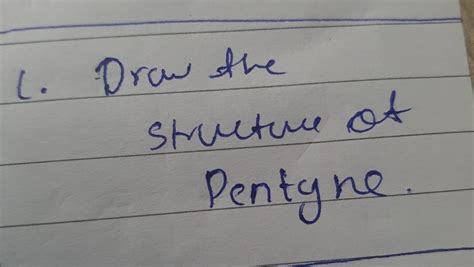 1. Draw the
structure of
Pentyne.